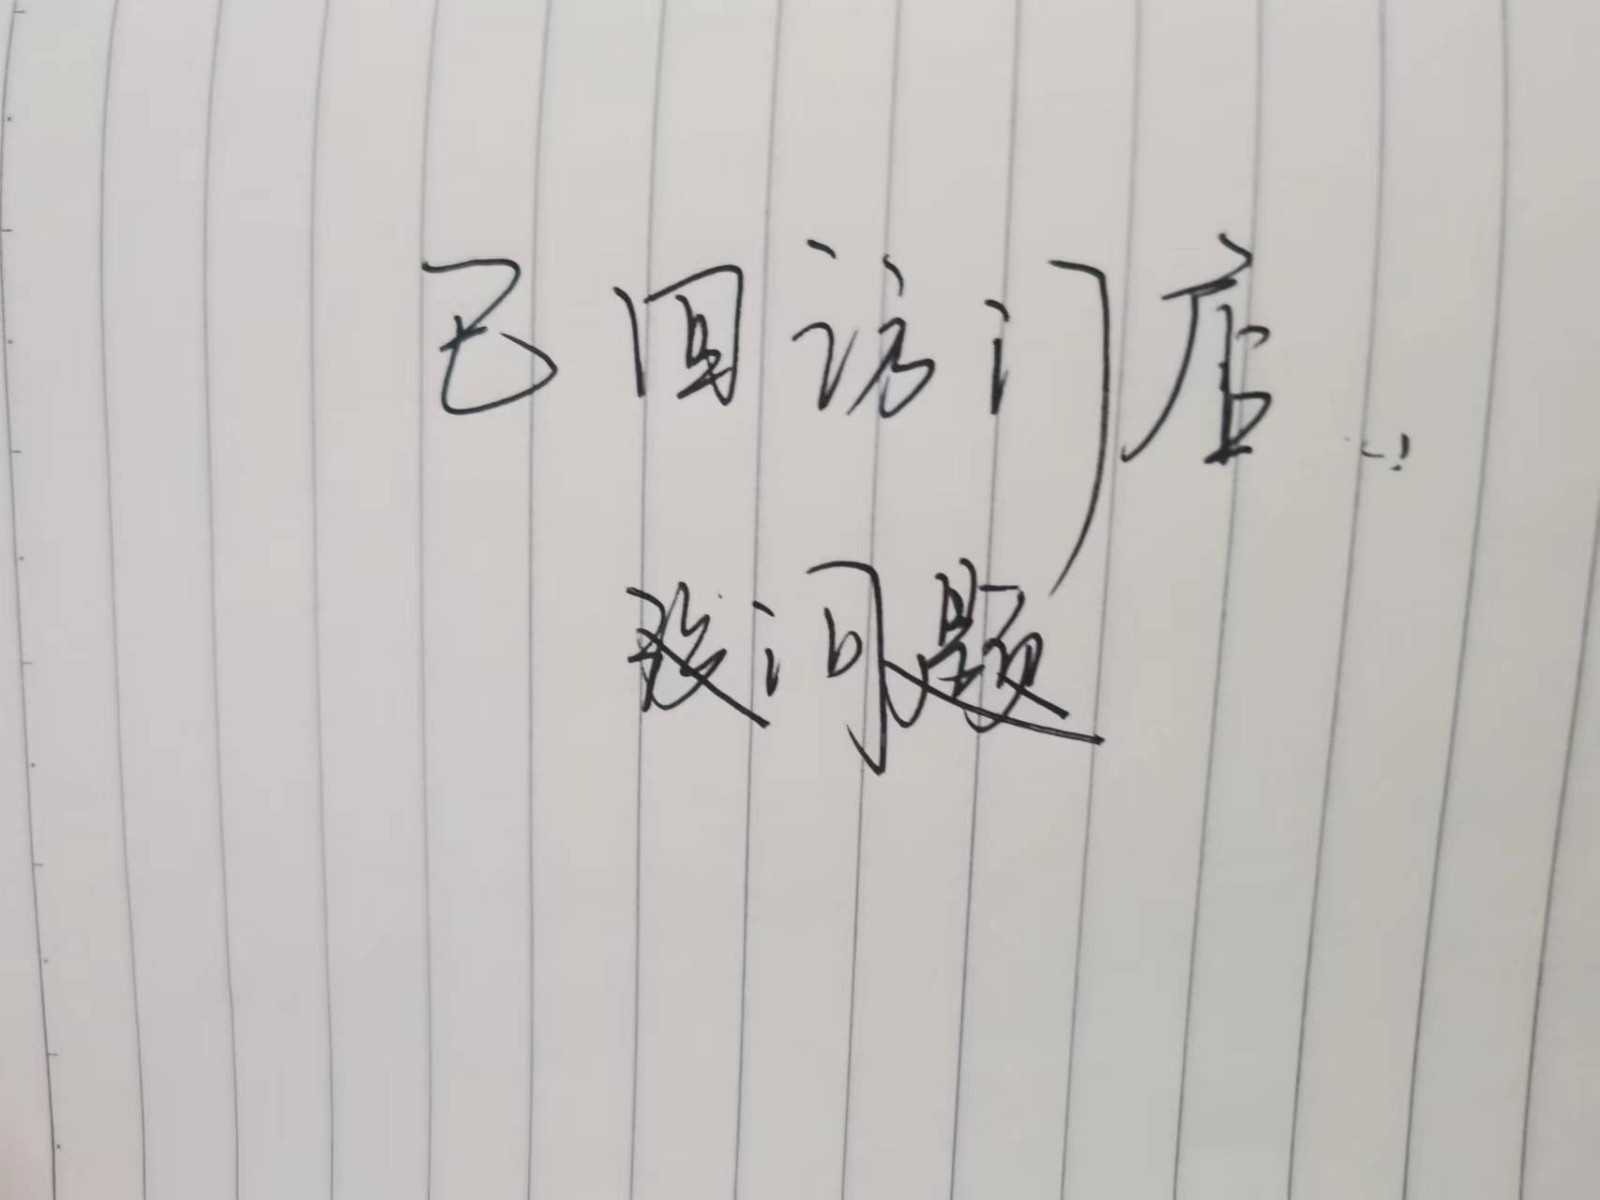 已回访门店
没问题